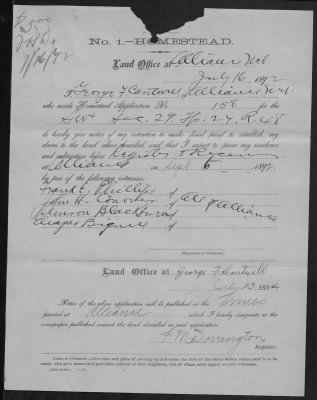 No. 1.—HOMESTEAD.
Land Office at Alliance Neb
July 16, 1892
I, George F Cantwell, of Alliance Neb
who made Homestead Application No. 158 for the
SW4 Sec. 29, Tp. 24, R. 48
do hereby give notice of my intention to make final proof to establish my
claim to the land above described, and that I expect to prove my residence
and cultivation before Register & Receiver
at Alliance on Sept 6 1892,
by two of the following witnesses:
Frank E. Phillips of
John H. of All of Alliance
Johnson Blackburn of
of
Land Office at
July 23, 1894
Notice of the above application will be published in the Times
printed at Alliance, which I hereby designate as the
newspaper published nearest the land described in said application.
F. M. Dorrington
Register.